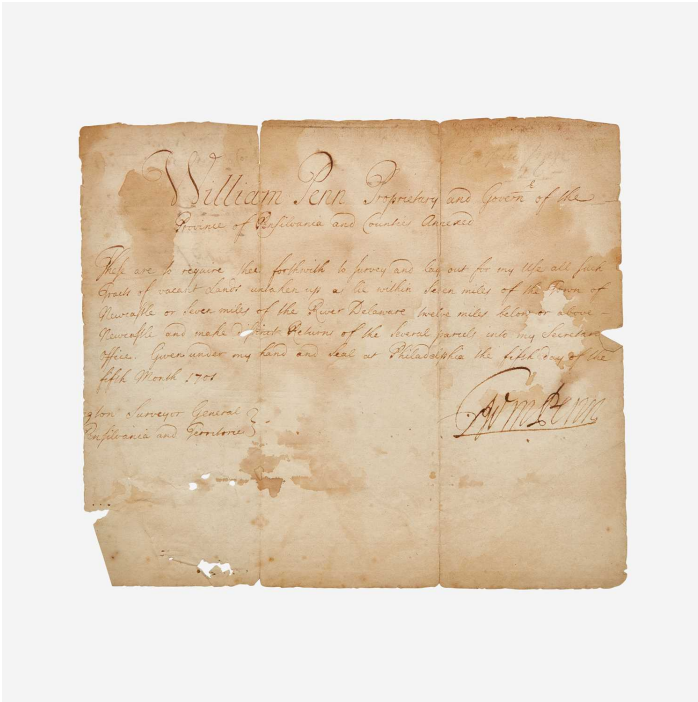 William Penn Proprietary and Govern.r of the
Province of Pensilvania and Counties Annexed
These are to require thee forthwith to survey and lay out for my Use all such
Tracts of vacant Lands untaken up as lie within Seven miles of the Town of
Newcastle or Seven miles of the River Delaware twelve miles below or above
Newcastle and make Returns of the Several parcels into my Secretarys
Office. Given under my hand and Seal at Philadelphia the fifth day of the
fifth Month 1701
gton Surveyor General
Pensilvania and Territories
Wm Penn